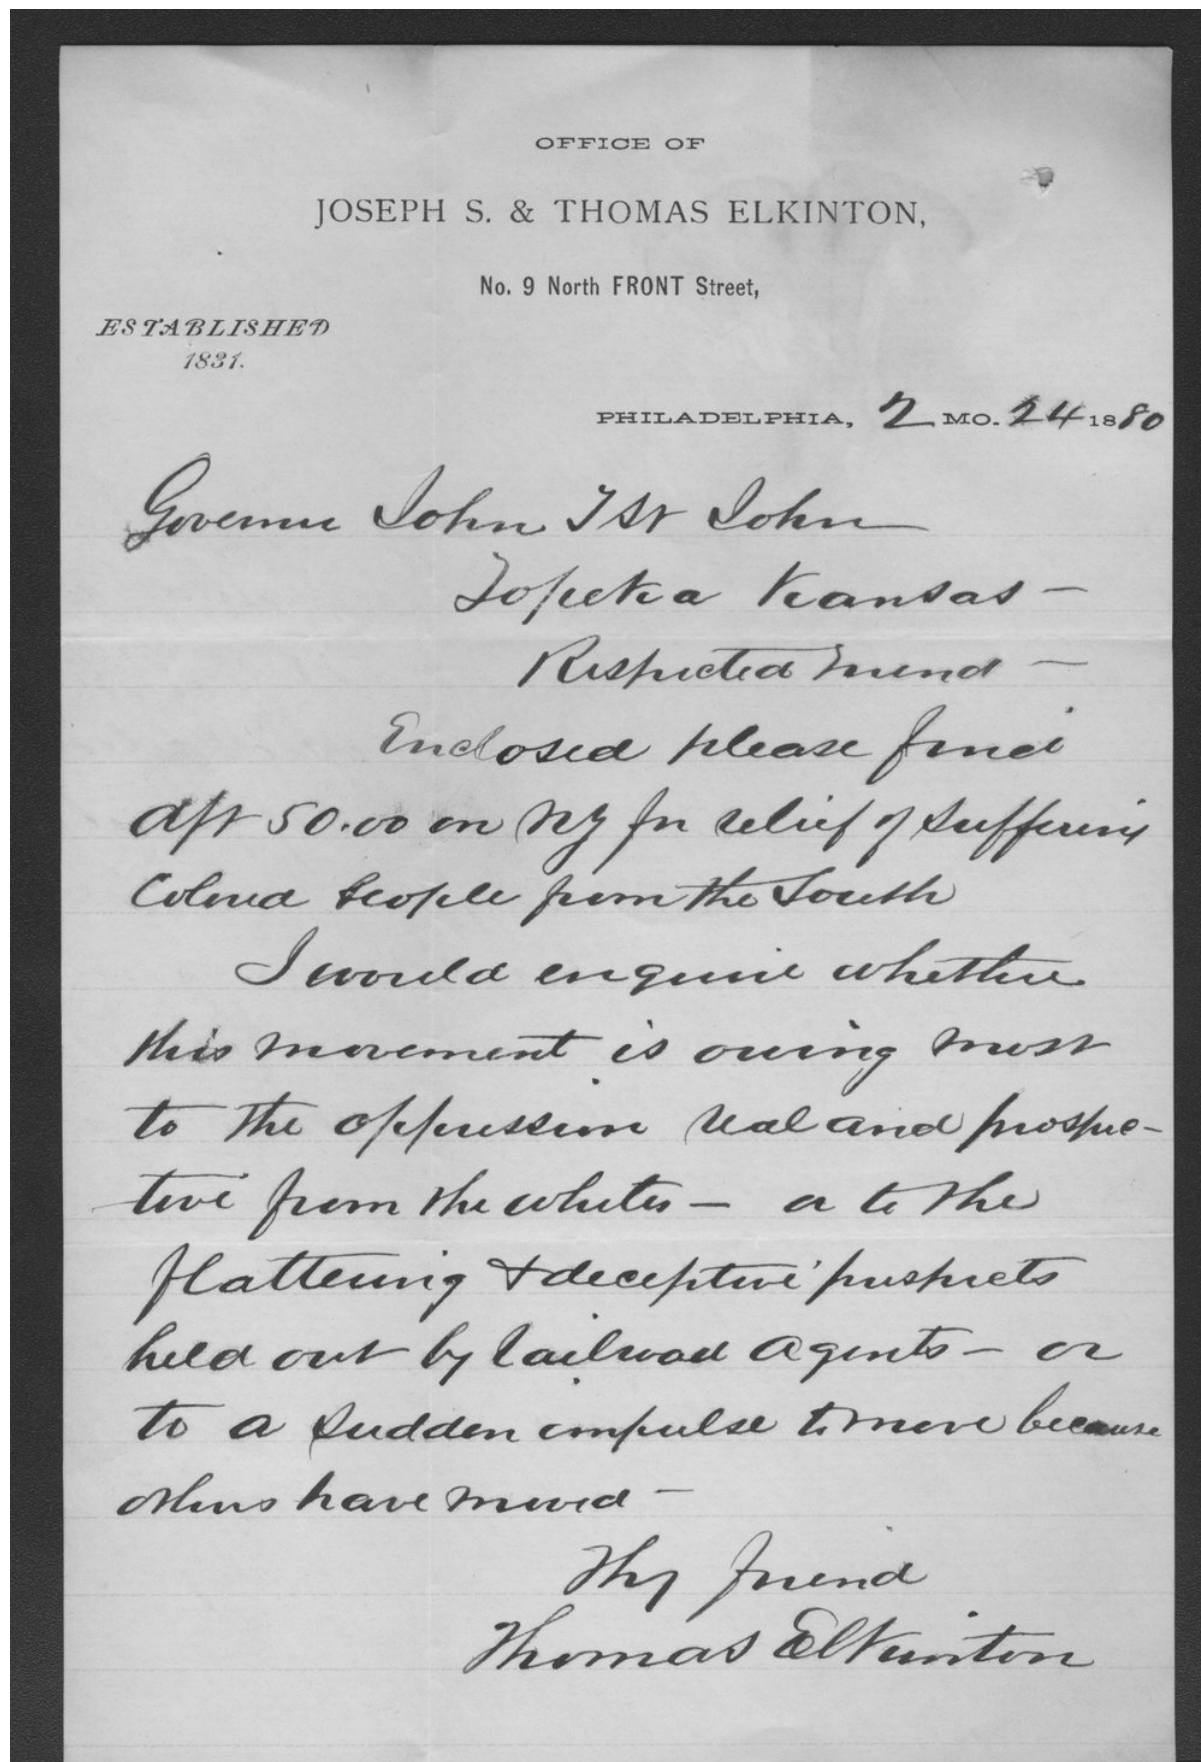 OFFICE OF
JOSEPH S. & THOMAS ELKINTON,
No. 9 North FRONT Street,
ESTABLISHED
1831.
PHILADELPHIA, 2 MO. 24 1880
Governor John P St John
Topeka Kansas —
Respected Friend —
Enclosed please find
dft 50.00 on NY for relief of suffering
Colored people from the South
I would enquire whether
this movement is owing most
to the oppression real and prospec-
tive from the whites — or to the
flattering & deceptive prospects
held out by railroad agents — or
to a sudden impulse to move because
others have moved —
Thy friend
Thomas Elkinton